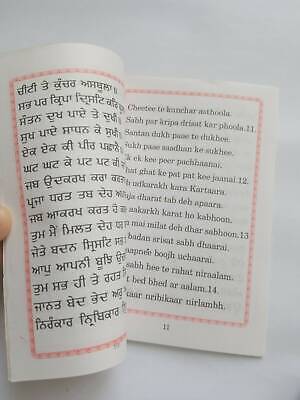 ਚੀਟੀ ਤੇ ਕੁੰਚਰ ਅਸਥੂਲਾ॥
ਸਭ ਪਰ ਕ੍ਰਿਪਾ ਦ੍ਰਿਸਟਿ ਕਰਿ
ਸੰਤਨ ਦੁਖ ਪਾਏ ਤੇ ਦੁਖੀ॥
ਸੁਖ ਪਾਏ ਸਾਧਨ ਕੇ ਸੁਖੀ॥
ਏਕ ਏਕ ਕੀ ਪੀਰ ਪਛਾਨੈ
ਘਟ ਘਟ ਕੇ ਪਟ ਪਟ ਕੀ
ਜਬ ਉਦਕਰਖ ਕਰਾ ਕਰ
ਪ੍ਰਜਾ ਧਰਤ ਤਬ ਦੇਹ ਅ
ਜਬ ਆਕਰਖ ਕਰਤ ਹੋ
ਤੁਮ ਮੈ ਮਿਲਤ ਦੇਹ ਧਰ
ਜੇਤੇ ਬਦਨ ਸ੍ਰਿਸਟਿ ਸਭ
ਆਪੁ ਆਪਨੀ ਬੂਝਿ ਉਚ
ਤੁਮ ਸਭ ਹੀ ਤੇ ਰਹਤ
ਜਾਨਤ ਬੇਦ ਭੇਦ ਅਰੁ
ਨਿਰੰਕਾਰ ਨ੍ਰਿਬਿਕਾਰ
Cheetee te kunchar asthoola.
Sabh par kripa drisat kar phoola.11.
Santan dukh paae te dukhee.
sukh paae saadhan ke sukhee.
k ek kee peer pachhaanai.
hat ghat ke pat pat kee jaanai.12
b udkarakh kara Kartaara.
aja dharat tab deh apaara.
aakarkh karat ho kabhoon.
mai milat deh dhar sabhoon.13
badan srisat sabh dhaarai.
aapnee boojh uchaarai.
sabh hee te rahat niraalam.
bed bhed ar aalam.
aar nribikaar nirlambh.
17